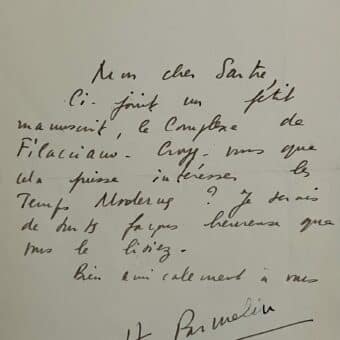 Mon cher Sartre,
Ci-joint un petit
manuscrit, le Complexe de
Filacciano. Croyez-vous que
cela puisse intéresser les
Temps Modernes ? Je serais
de toutes façons heureuse que
vous le lisiez.
Bien amicalement à vous
H Parmelin